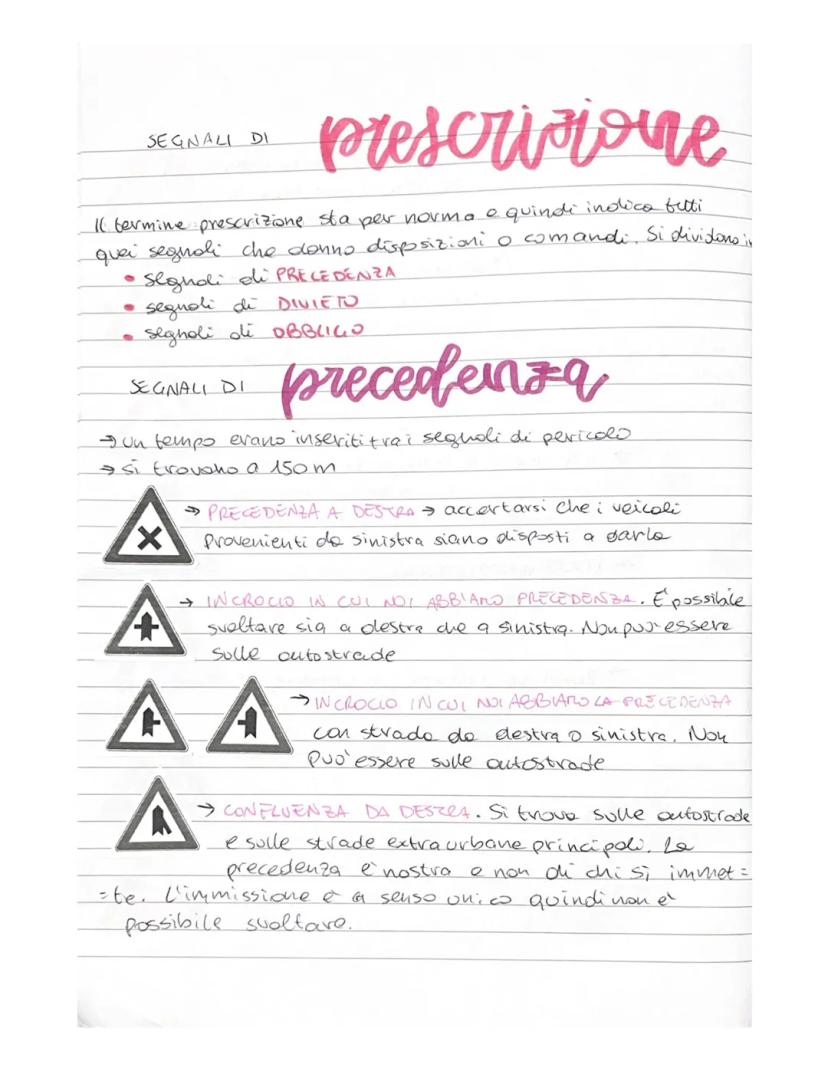 SEGNALI DI prescrizione
Il termine prescrizione sta per norma e quindi indica tutti
quei segnali che danno disposizioni o comandi. Si dividono in
• segnali di PRECEDENZA
• segnali di DIVIETO
• segnali di OBBLIGO
SEGNALI DI precedenza
→ un tempo erano inseriti tra i segnali di pericolo
→ si trovano a 150 m
→ PRECEDENZA A DESTRA → accertarsi che i veicoli
provenienti da sinistra siano disposti a darla
→ INCROCIO IN CUI NOI ABBIAMO PRECEDENZA. È possibile
svoltare sia a destra che a sinistra. Non può essere
sulle autostrade
→ INCROCIO IN CUI NOI ABBIAMO LA PRECEDENZA
con strada da destra o sinistra. Non
può essere sulle autostrade
→ CONFLUENZA DA DESTRA. Si trova sulle autostrade
e sulle strade extraurbane principali. La
precedenza è nostra e non di chi si immet=
=te. L'immissione è a senso unico quindi non è
possibile svoltare.